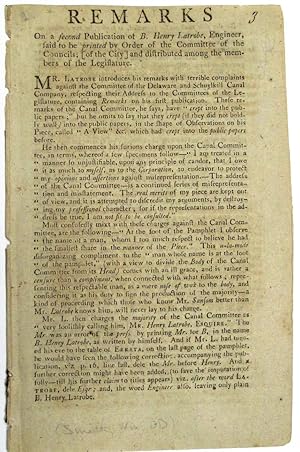 REMARKS
3
On a second Publication of B. Henry Latrobe, Engineer,
said to be printed by Order of the Committee of the
Councils; [of the City] and distributed among the mem-
bers of the Legislature.
MR. LATROBE introduces his remarks with terrible complaints
against the Committee of the Delaware and Schuylkill Canal
Company, respecting their Address to the Committees of the Le-
gislature, containing Remarks on his first publication. Those re-
marks of the Canal Committee, he says, have "crept into the pub-
lic papers," but he omits to say that they crept (if they did not bold-
ly walk) into the public papers, in the shape of Observations on his
Piece, called "A View" &c. which had crept into the public papers
before.
He then commences his furious charge upon the Canal Commit-
tee, in terms, whereof a few specimens follow—"I am treated in
a manner so unjustifiable, upon any principle of candor, that I owe
it as much to myself, as to the Corporation, to endeavor to protect
my opinions and assertions against misrepresentation—The address
of the Canal Committee—is a continued series of misrepresenta-
tion and misstatement. The real merits of my piece are kept out
of view, and it is attempted to discredit my arguments, by destroy-
ing my professional character; for if the representations in the ad-
dress be true, I am not fit to be consulted.
Most confusedly mixt with these charges against the Canal Com-
mittee, are the following—"At the foot of the Pamphlet I observe
"the name of a man, whom I too much respect to believe he had
"the smallest share in the manner of the Piece." This
disorganizing compliment to the "man whose name is at the foot
"of the pamphlet," with a view to divide the Body of the Canal
Committee from its Head! comes with an ill grace, and is rather a
censure than a compliment, when connected with what follows; repre-
senting this respectable man, as a mere nose of wax to the body, and
considering it as his duty to sign the production of the majority—a
kind of proceeding which those who know Mr. Samson better than
Mr. Latrobe knows him, will never lay to his charge.
Mr. L. then charges the majority of the Canal Committee as
"very foolishly calling him, Mr. Henry Latrobe, ESQUIRE." The
Mr. was an error of the press, by printing Mr. for B, in the name
B. Henry Latrobe, as written by himself. And if Mr. L. had turn-
ed his eye to the table of ERRATA, on the last page of the pamphlet,
he would have seen the following correction, accompanying the pub-
lication, viz. p. 16, line last, dele the Mr. before Henry. And a
further correction might have been added, (to save the imputation of
folly—till his further claim to titles appears) viz. after the word LA-
TROBE, dele Esqr; and, the word Engineer also, leaving only plain
B. Henry Latrobe.